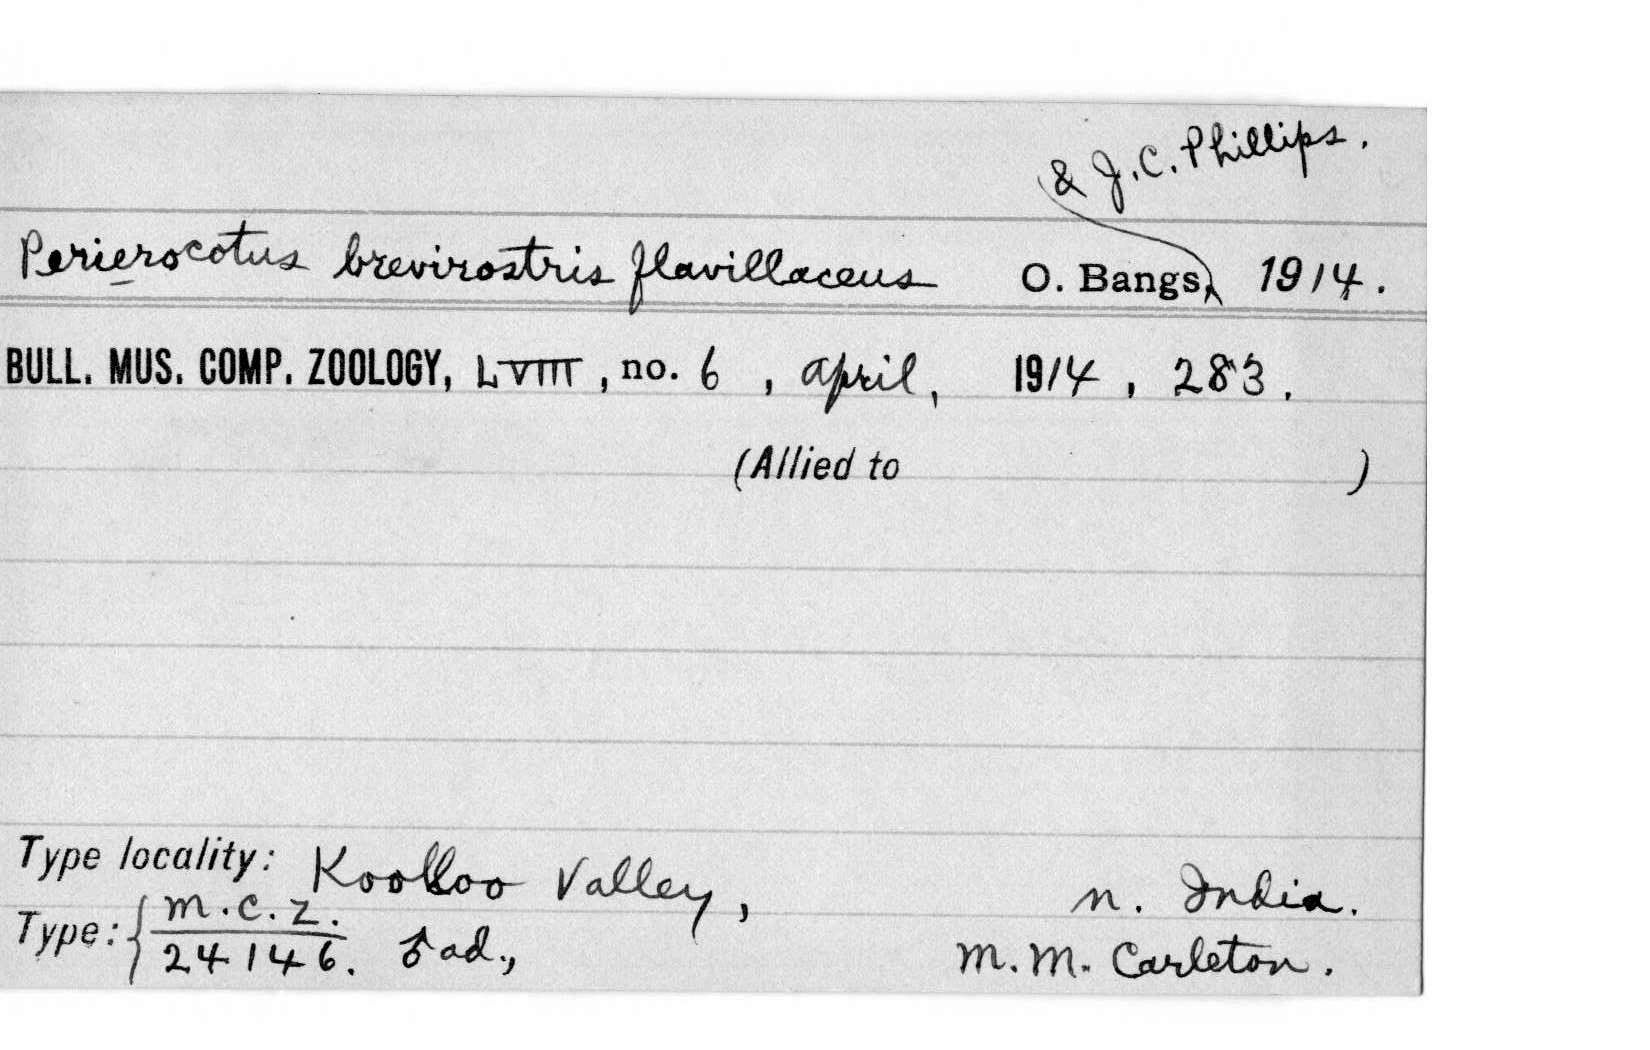 & J. C. Phillips.
Perierocotus brevirostris flavillaceus O. Bangs, 1914.
BULL. MUS. COMP. ZOOLOGY, LVIII, no. 6, April, 1914, 283.
(Allied to )
Type locality: Koolloo Valley, n. India.
Type: { M.C.Z. 24146. ♂ ad., M. M. Carleton.